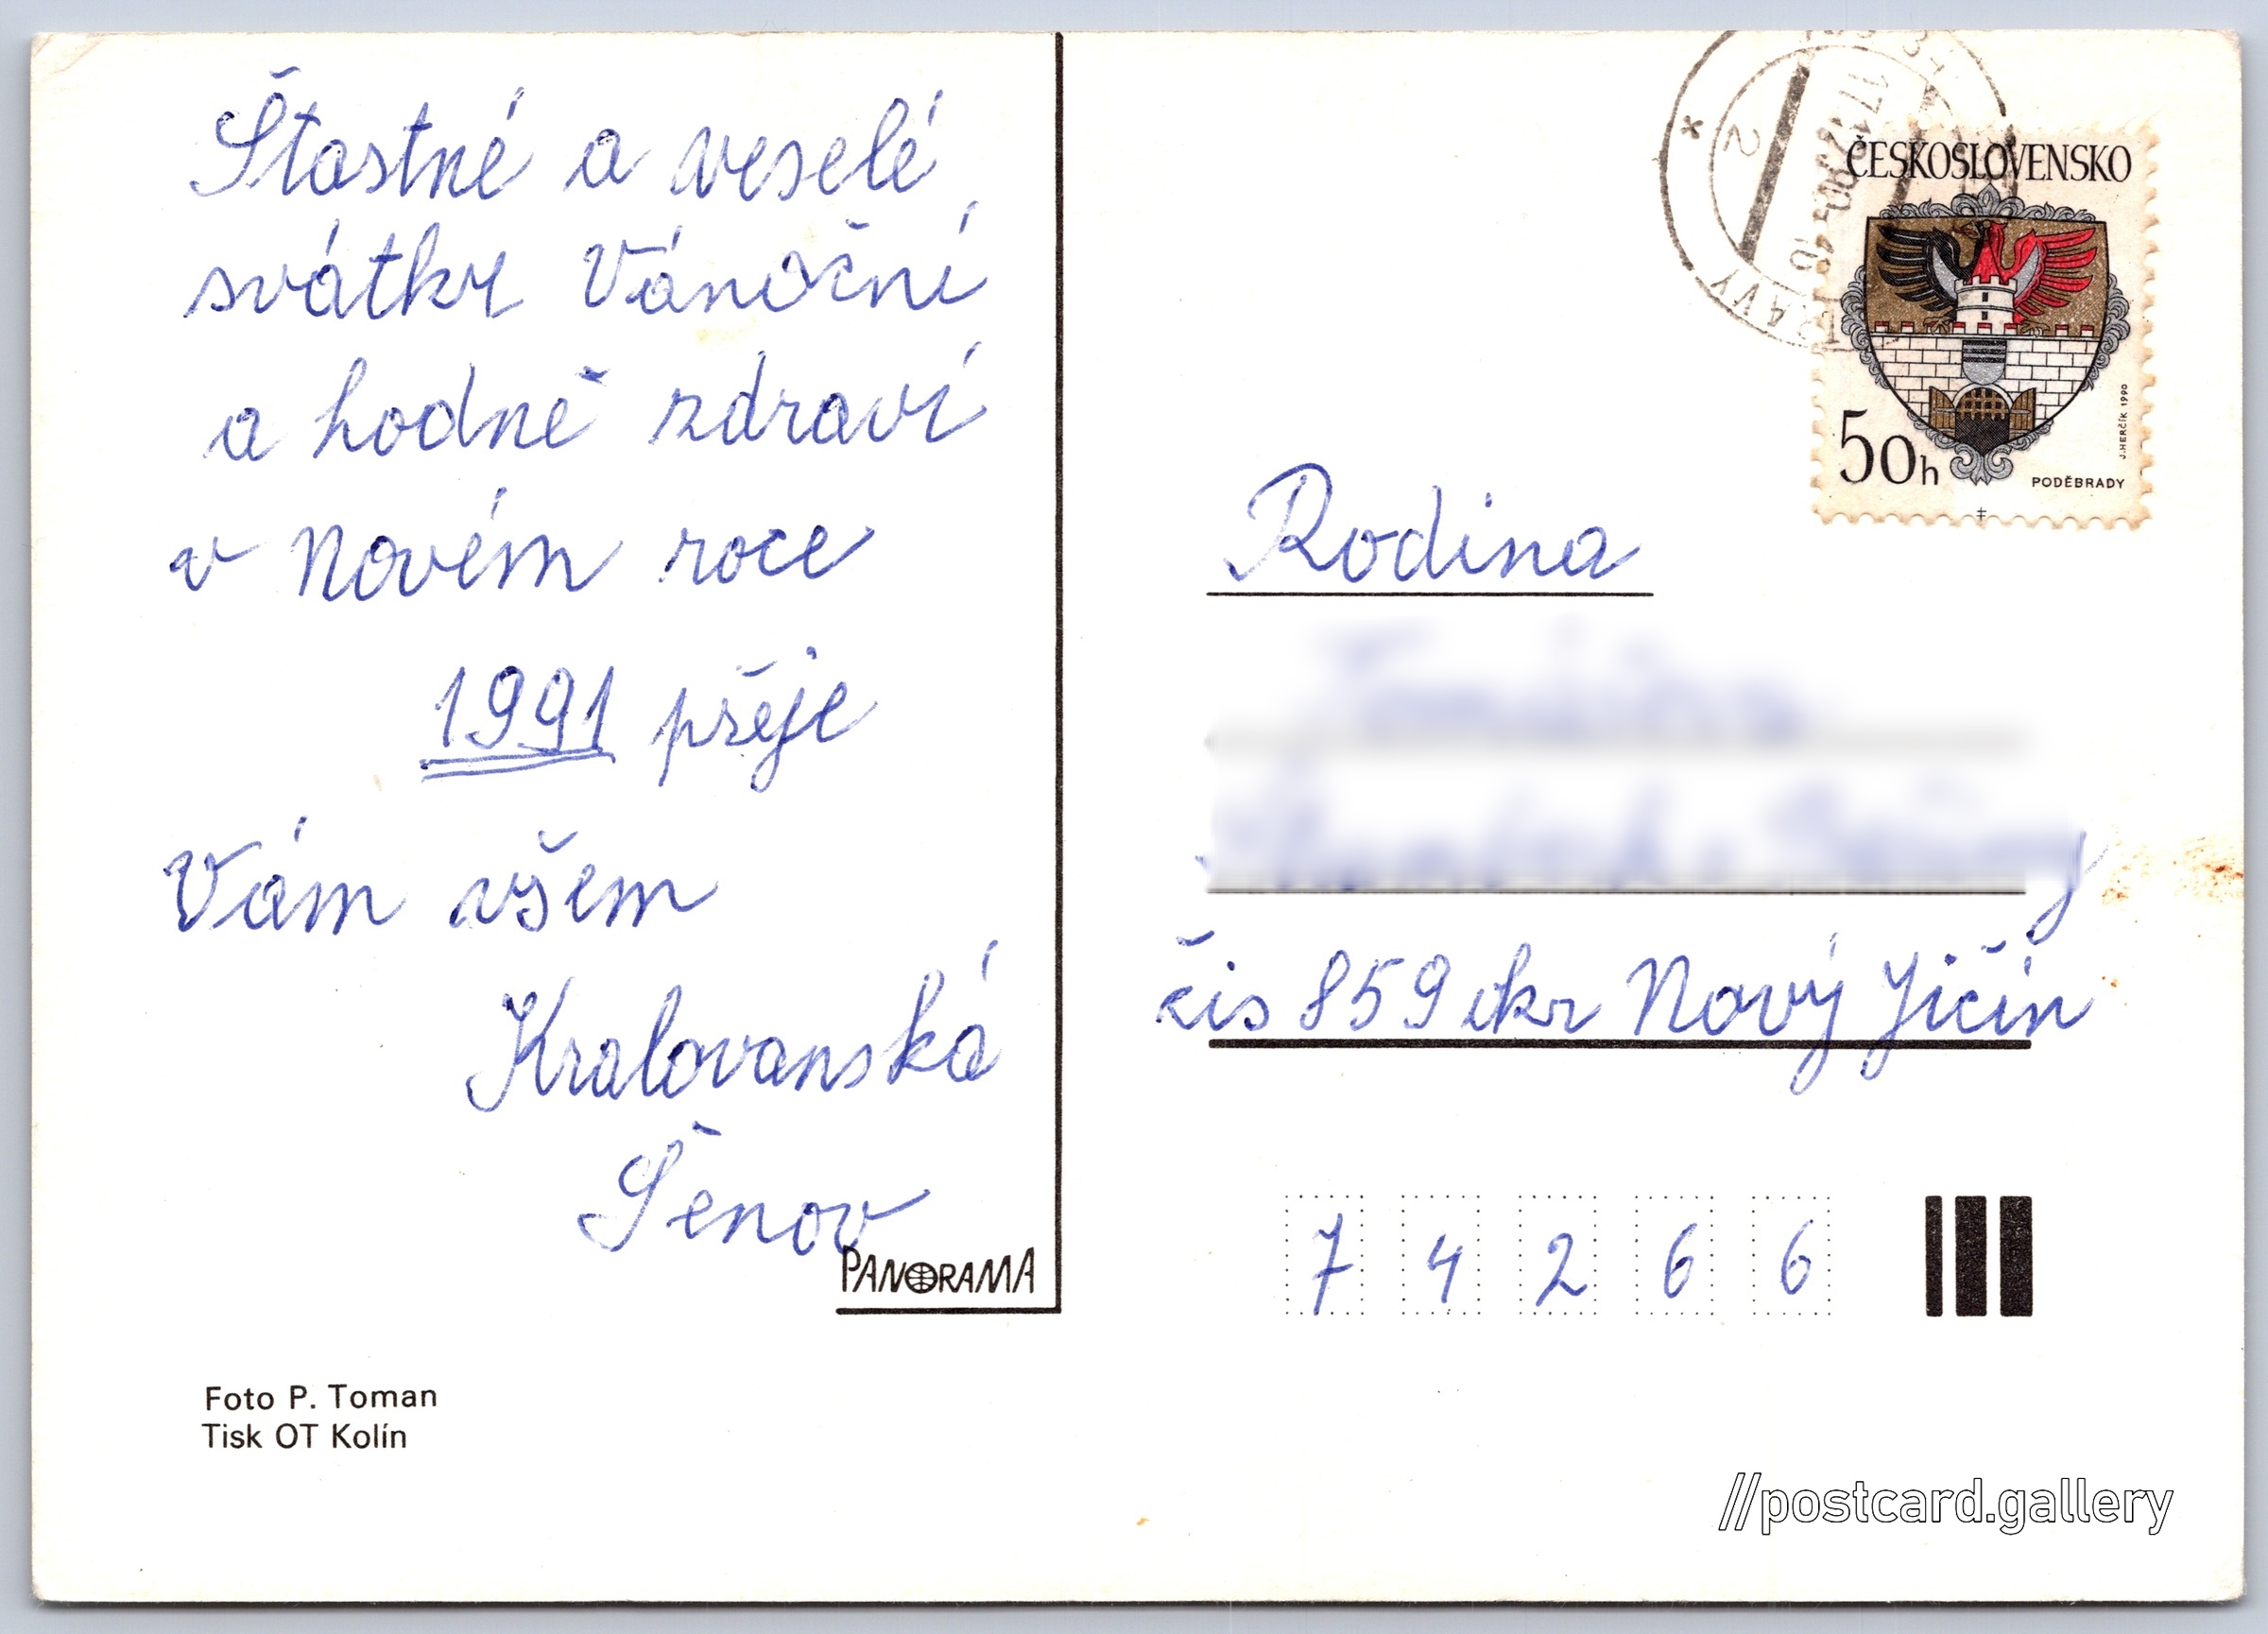 Štastné a veselé
svátky Vánoční
a hodně zdraví
v Novém roce
1991 přeje
Vám všem
Kralovanská
Šenov
PANORAMA
Foto P. Toman
Tisk OT Kolín
17.12.90-16
2
ČESKOSLOVENSKO
50h
PODĚBRADY
J. HERČÍK 1990
Rodina
čis 859 okr Nový Jičín
7 4 2 6 6
//postcard.gallery